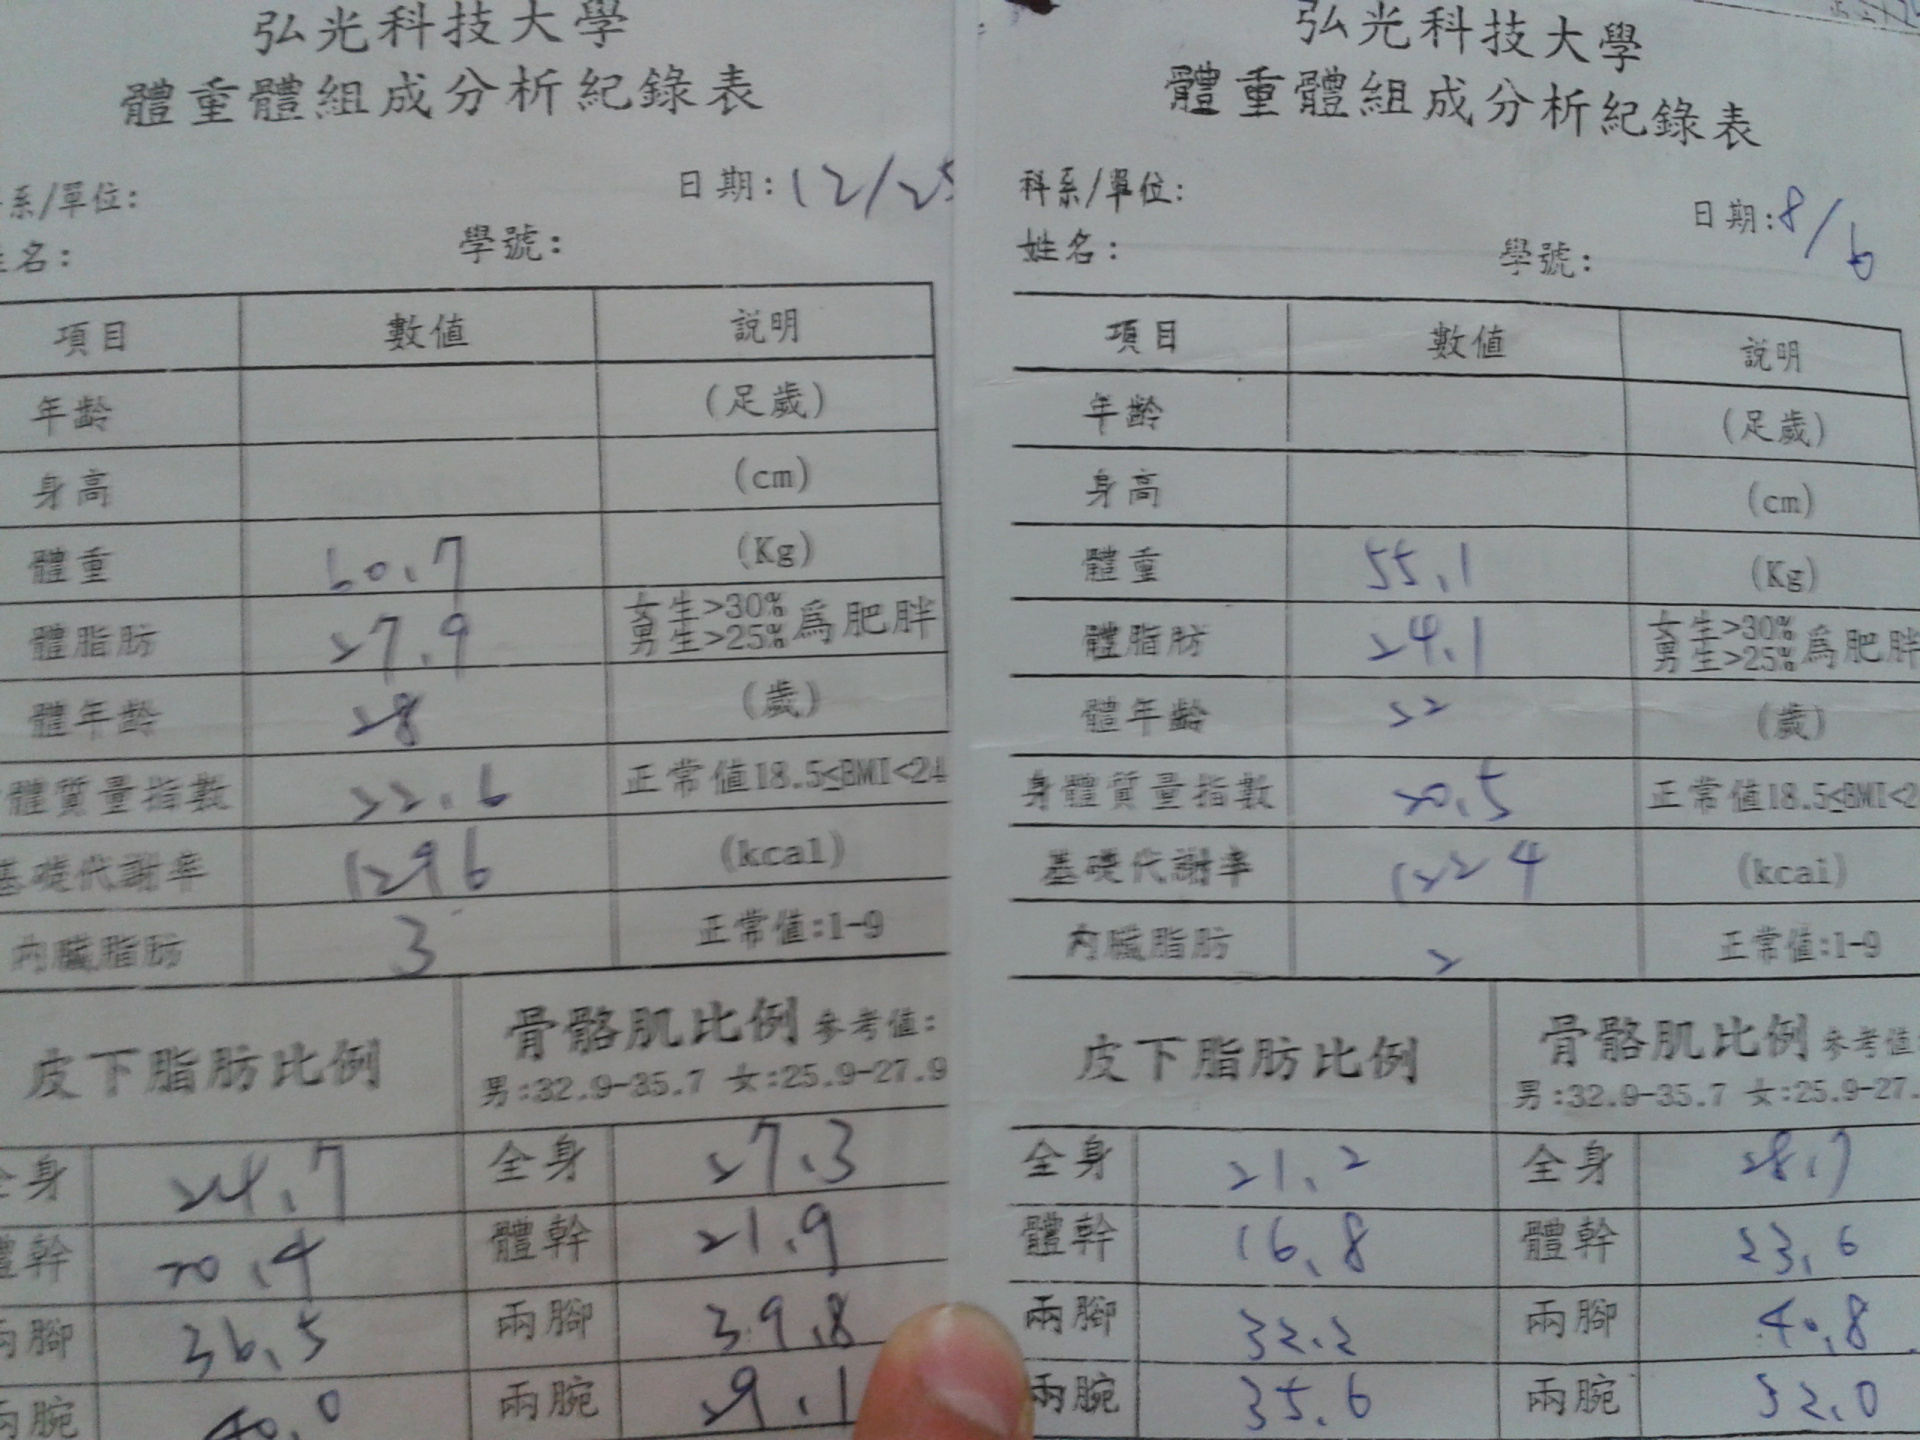 弘光科技大學
體重體組成分析紀錄表
系/單位:
日期:12/25
名:
學號:
項目 數值 說明
年齡 (足歲)
身高 (cm)
體重 60.7 (Kg)
體脂肪 27.9 女生>30% 男生>25% 為肥胖
體年齡 28 (歲)
體質量指數 22.6 正常值18.5≤BMI<24
基礎代謝率 1296 (kcal)
內臟脂肪 3 正常值:1-9
皮下脂肪比例 骨骼肌比例 參考值:
男:32.9-35.7 女:25.9-27.9
全身 24.7 全身 27.3
體幹 20.4 體幹 21.9
兩腳 36.5 兩腳 39.8
兩腕 40.0 兩腕 29.1
弘光科技大學
體重體組成分析紀錄表
科系/單位:
日期:8/6
姓名:
學號:
項目 數值 說明
年齡 (足歲)
身高 (cm)
體重 55.1 (Kg)
體脂肪 24.1 女生>30% 男生>25% 為肥胖
體年齡 22 (歲)
身體質量指數 20.5 正常值18.5≤BMI<2
基礎代謝率 1224 (kcal)
內臟脂肪 2 正常值:1-9
皮下脂肪比例 骨骼肌比例 參考值
男:32.9-35.7 女:25.9-27.
全身 21.2 全身 28.7
體幹 16.8 體幹 23.6
兩腳 32.2 兩腳 40.8
兩腕 35.6 兩腕 32.0